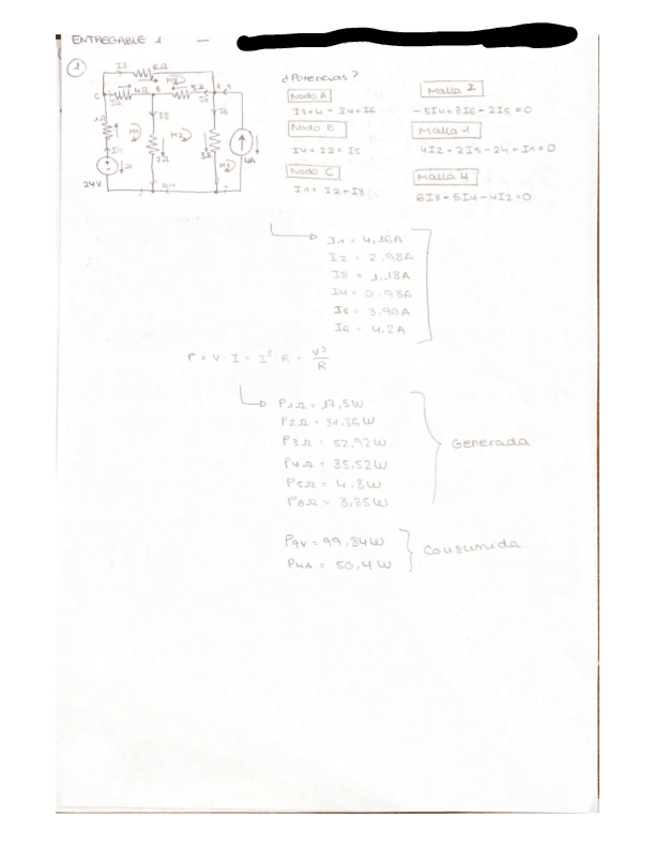 ENTREGABLE 1 —
1
¿Potencias?
I3 6Ω
C 4Ω B 5Ω A
I2 I4
1Ω M1 I5 M2 I6
2Ω 3Ω 4A
I1 M3
24V
Nodo A
I3+4 = I4+I6
Nodo B
I4+I2 = I5
Nodo C
I1 = I2+I3
Malla 2
-5I4+3I6-2I5=0
Malla 1
4I2+2I5-24+I1=0
Malla 4
6I3+5I4-4I2=0
I1 = 4,16A
I2 = 2,98A
I3 = 1,18A
I4 = 0,98A
I5 = 3,96A
I6 = 4,2A
P = V·I = I²·R = V²/R
P1Ω = 17,3W
P2Ω = 31,36W
P3Ω = 52,92W
P4Ω = 35,52W
P5Ω = 4,8W
P6Ω = 8,35W
Generada
= 99,84W
P4A = 50,4W
Consumida